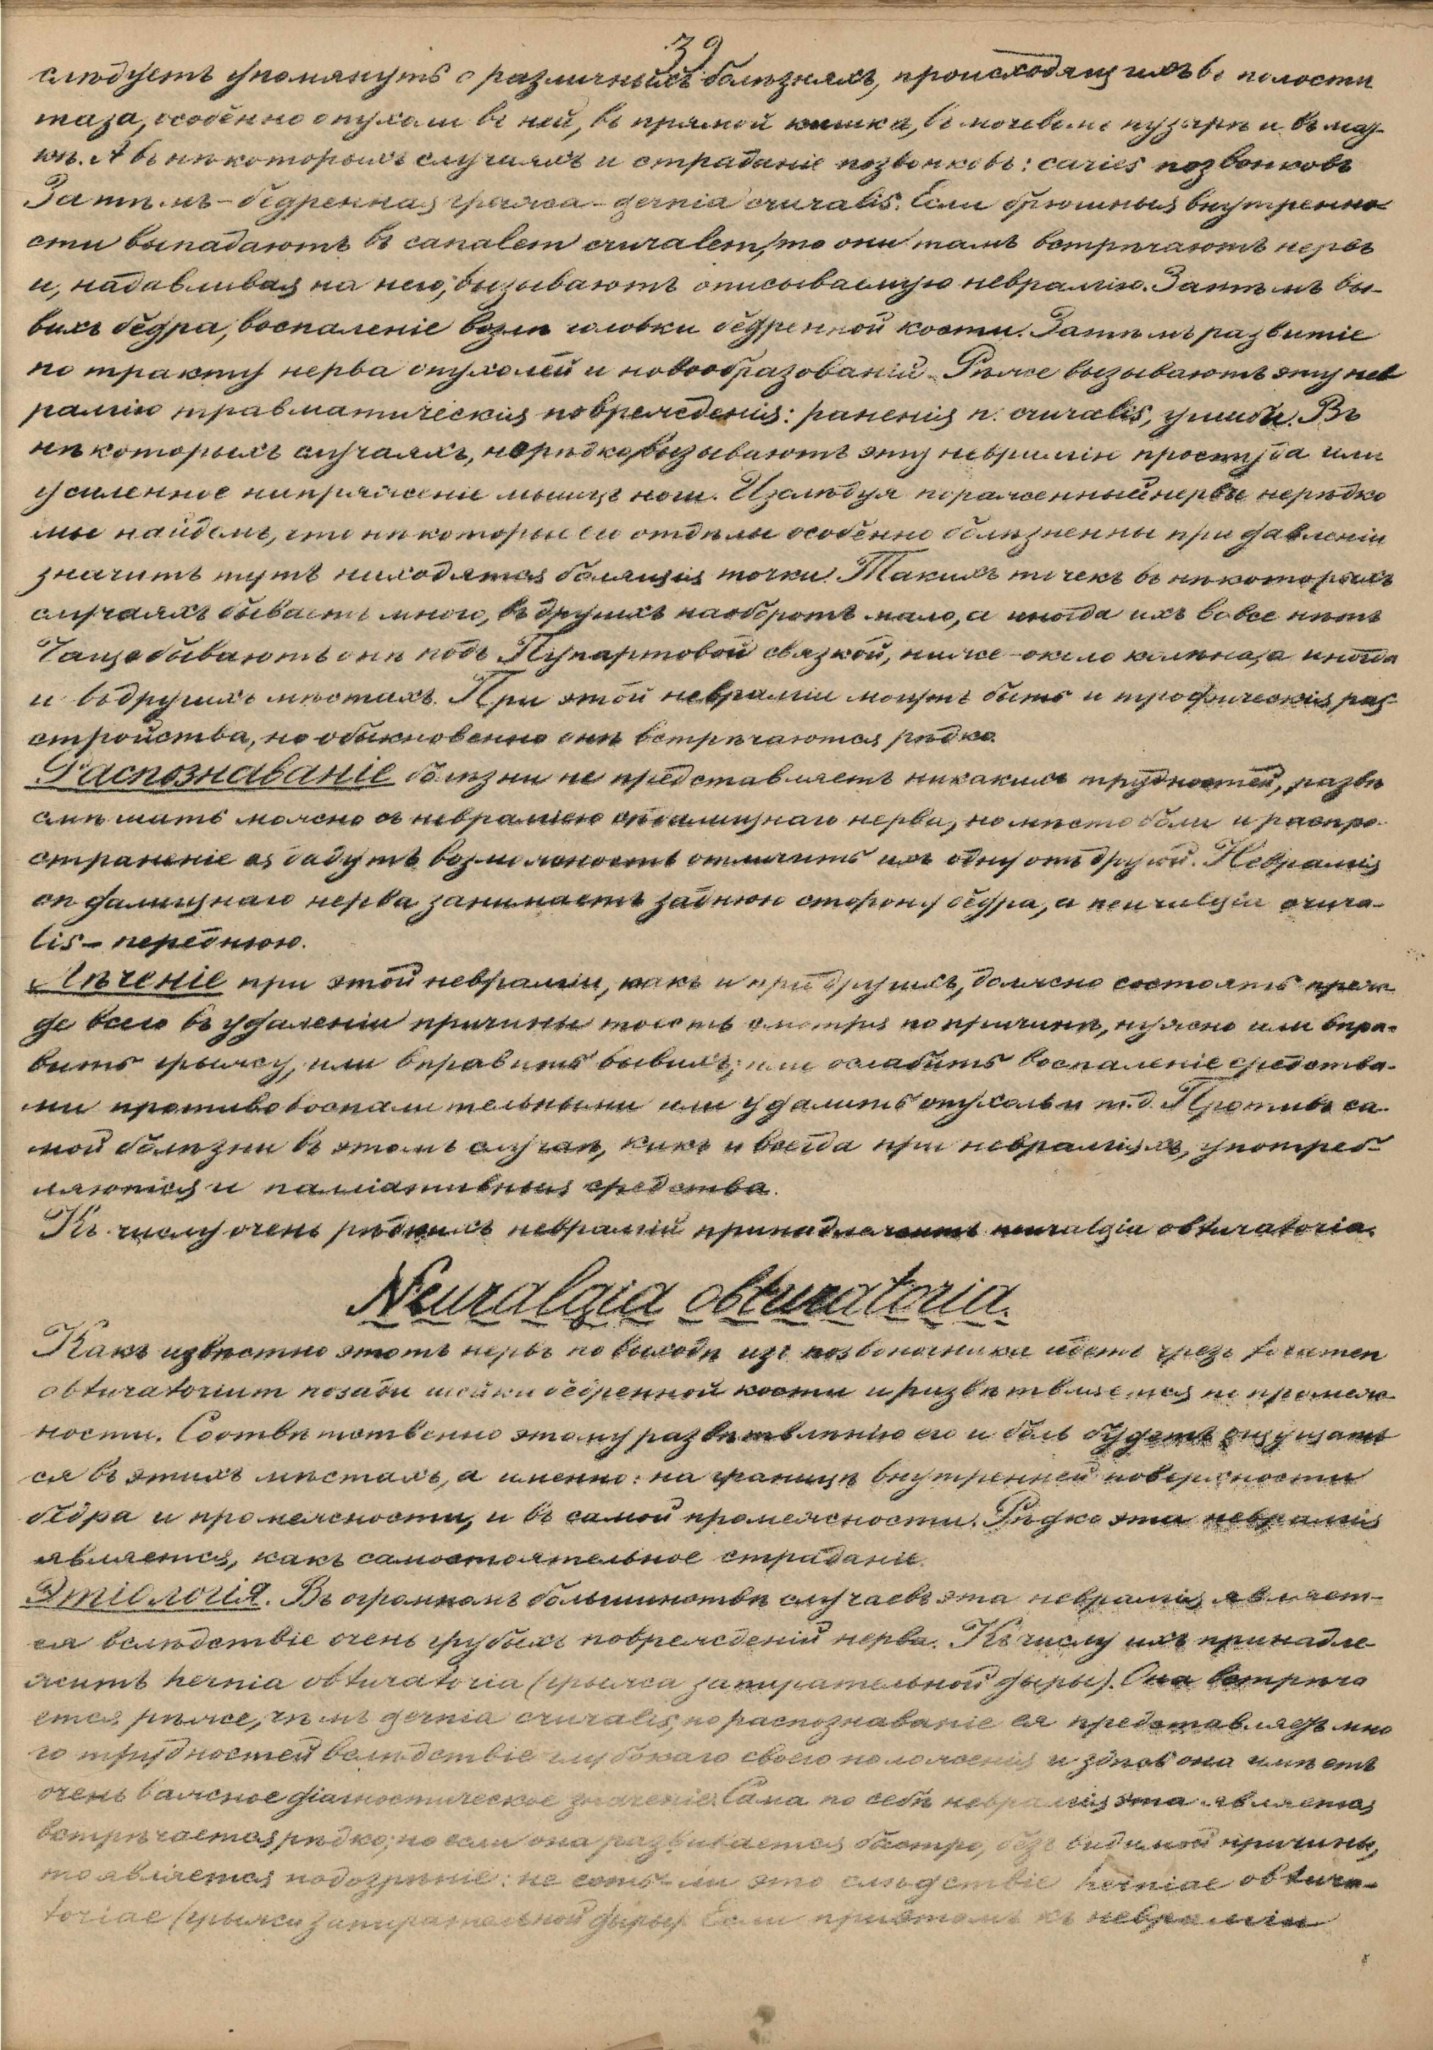 39
слѣдуетъ упомянуть о различныхъ болѣзняхъ, происходящихъ въ полости
таза, особенно опухоли въ ней, въ прямой кишкѣ, въ мочевомъ пузырѣ и въ мат-
кѣ. А въ нѣкоторыхъ случаяхъ и страданіе позвонковъ: caries позвонковъ
Затѣмъ – бедренная грыжа – gernia cruralis. Если брюшныя внутренно
сти выпадаютъ въ canalem cruralem, то они тамъ встрѣчаютъ нервъ
и, надавливая на него, вызываютъ описываемую невралгію. Затѣмъ вы-
вихъ бедра, воспаленіе возлѣ головки бедренной кости. Затѣмъ развитіе
по тракту нерва опухолей и новообразованій. Рѣже вызываютъ эту нев
ралгію травматическія поврежденія: раненія n. cruralis, ушибы. Въ
нѣкоторыхъ случаяхъ, нерѣдко, вызываютъ эту невралгію простуда или
усиленное напряженіе мышцъ ноги. Изслѣдуя пораженный нервъ нерѣдко
мы найдемъ, что нѣкоторые его отдѣлы особенно болѣзненны при давленіи
значитъ тутъ находятся болящія точки. Такихъ точекъ въ нѣкоторыхъ
случаяхъ бываетъ много, въ другихъ наоборотъ мало, а иногда ихъ вовсе нѣтъ
Чаще бываютъ онѣ подъ Пупартовой связкой, ниже – около колѣна, а иногда
и въ другихъ мѣстахъ. При этой невралгіи могутъ быть и трофическія раз-
стройства, но обыкновенно онѣ встрѣчаются рѣдко.
Распознаваніе болѣзни не представляетъ никакихъ трудностей, развѣ
смѣшать можно съ невралгіею сѣдалищнаго нерва, но мѣсто боли и распро-
страненіе ея дадутъ возможность отличить ихъ одну отъ другой. Невралгія
сѣдалищнаго нерва занимаетъ заднюю сторону бедра, а neuralgia crura-
lis – переднюю.
Лѣченіе при этой невралгіи, какъ и при другихъ, должно состоять преж-
де всего въ удаленіи причины т.е. смотря по причинѣ, нужно или впра-
вить грыжу, или вправить вывихъ, или ослабить воспаленіе средства-
ми противовоспалительными или удалить опухоль и т.д. Противъ са-
мой болѣзни въ этомъ случаѣ, какъ и всегда при невралгіяхъ, употреб-
ляются и палліативныя средства.
Къ числу очень рѣдкихъ невралгій принадлежитъ neuralgia obturatoria.
Neuralgia obturatoria.
Какъ извѣстно этотъ нервъ по выходѣ изъ позвоночника идетъ чрезъ foramen
obturatorium позади шейки бедренной кости и развѣтвляется по промеж-
ности. Соотвѣтственно этому развѣтвленію его и боль будетъ ощущать
ся въ этихъ мѣстахъ, а именно: на границѣ внутренней поверхности
бедра и промежности, и въ самой промежности. Рѣдко эта невралгія
является, какъ самостоятельное страданіе.
Этіологія. Въ огромномъ большинствѣ случаевъ эта невралгія являет-
ся вслѣдствіе очень грубыхъ поврежденій нерва. Къ числу ихъ принадле-
житъ hernia obturatoria (грыжа запирательной дыры). Она встрѣча
ется рѣже, чѣмъ gernia cruralis, но распознаваніе ея представляетъ мно
го трудностей вслѣдствіе глубокаго своего положенія и здѣсь она имѣетъ
очень важное діагностическое значеніе. Сама по себѣ невралгія эта является
встрѣчается рѣдко; но если она развивается быстро, безъ видимой причины,
то является подозрѣніе: не есть ли это слѣдствіе herniae obtura-
toriae (грыжи запирательной дыры). Если при этомъ къ невралгіи